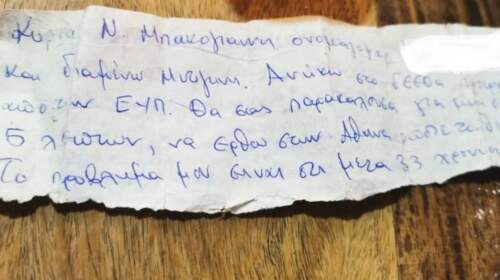 Κυρία Ν. Μπακογιαννη ονομαζομαι
και διαμένω Μυτιλήνη. Ανήκω στα
από την ΕΥΠ. Θα σας παρακαλουσα για μια
5 λεπτων, να ερθω στην Αθηνα
Το προβλημα μου ειναι οτι μετα 33 χρονια